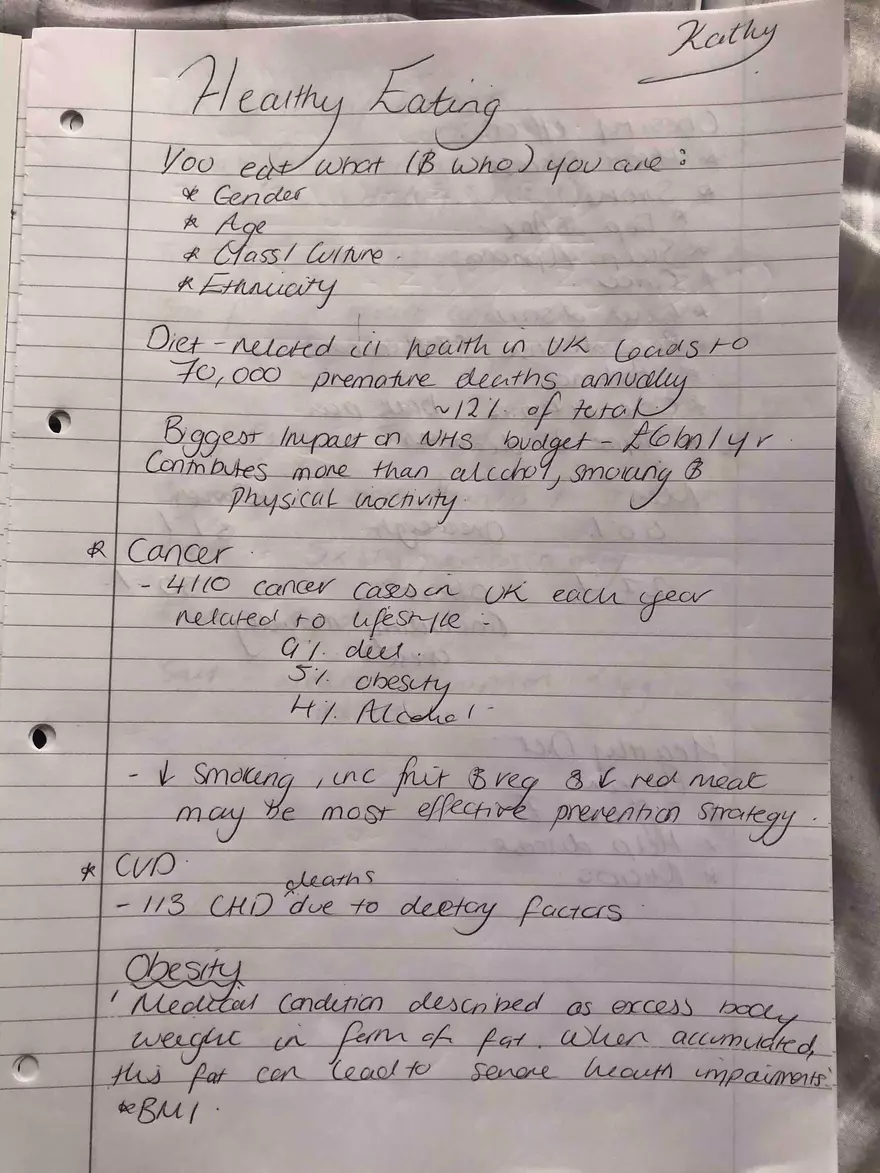 Kathy
Healthy Eating
You eat what (& who) you are :
* Gender
* Age
* Class / Culture .
* Ethnicity
Diet - related ill health in UK leads to
70,000 premature deaths annually
~12% of total
Biggest impact on NHS budget - £6bn/yr .
Contributes more than alcohol, smoking &
physical inactivity .
* Cancer .
- 4/10 cancer cases in UK each year
related to lifestyle :
9% diet .
5% obesity
4% Alcohol
- ↓ smoking , inc fruit & veg & ↓ red meat
may be most effective prevention strategy .
* CVD .
deaths
- 1/3 CHD due to dietary factors
Obesity
' Medical condition described as excess body
weight in form of fat . When accumulated,
this fat can lead to severe health impairments '
* BMI .